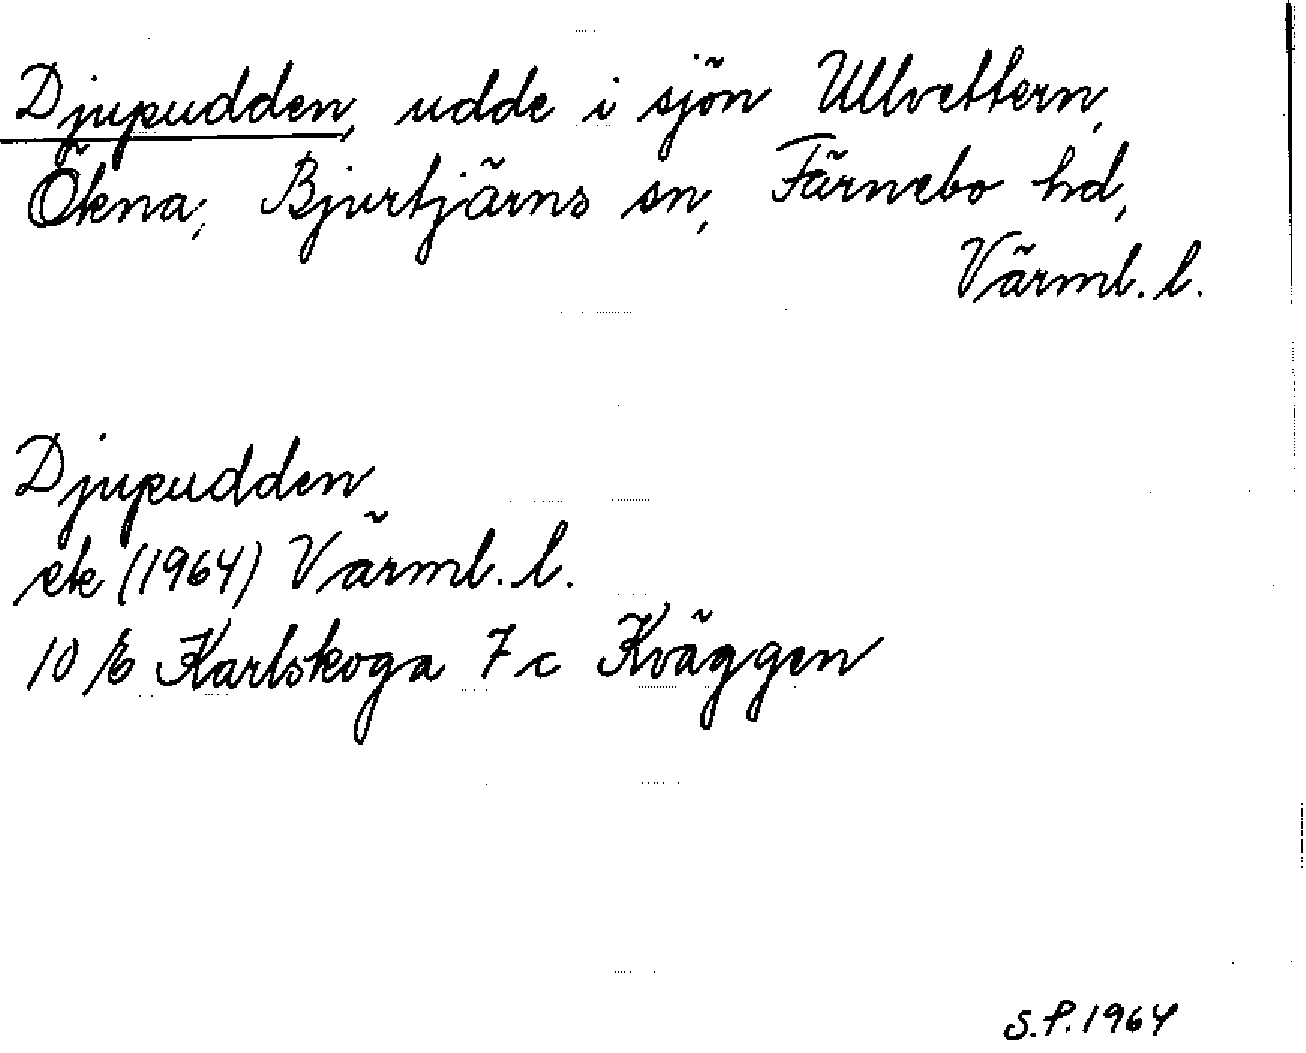 Djupudden, udde i sjön Ullvettern,
Ökna, Bjurtjärns sn, Färnebo hd,
Värml. l.
Djupudden
ek (1964) Värml. l.
10 E Karlskoga 7 c Kväggen
S.P. 1964